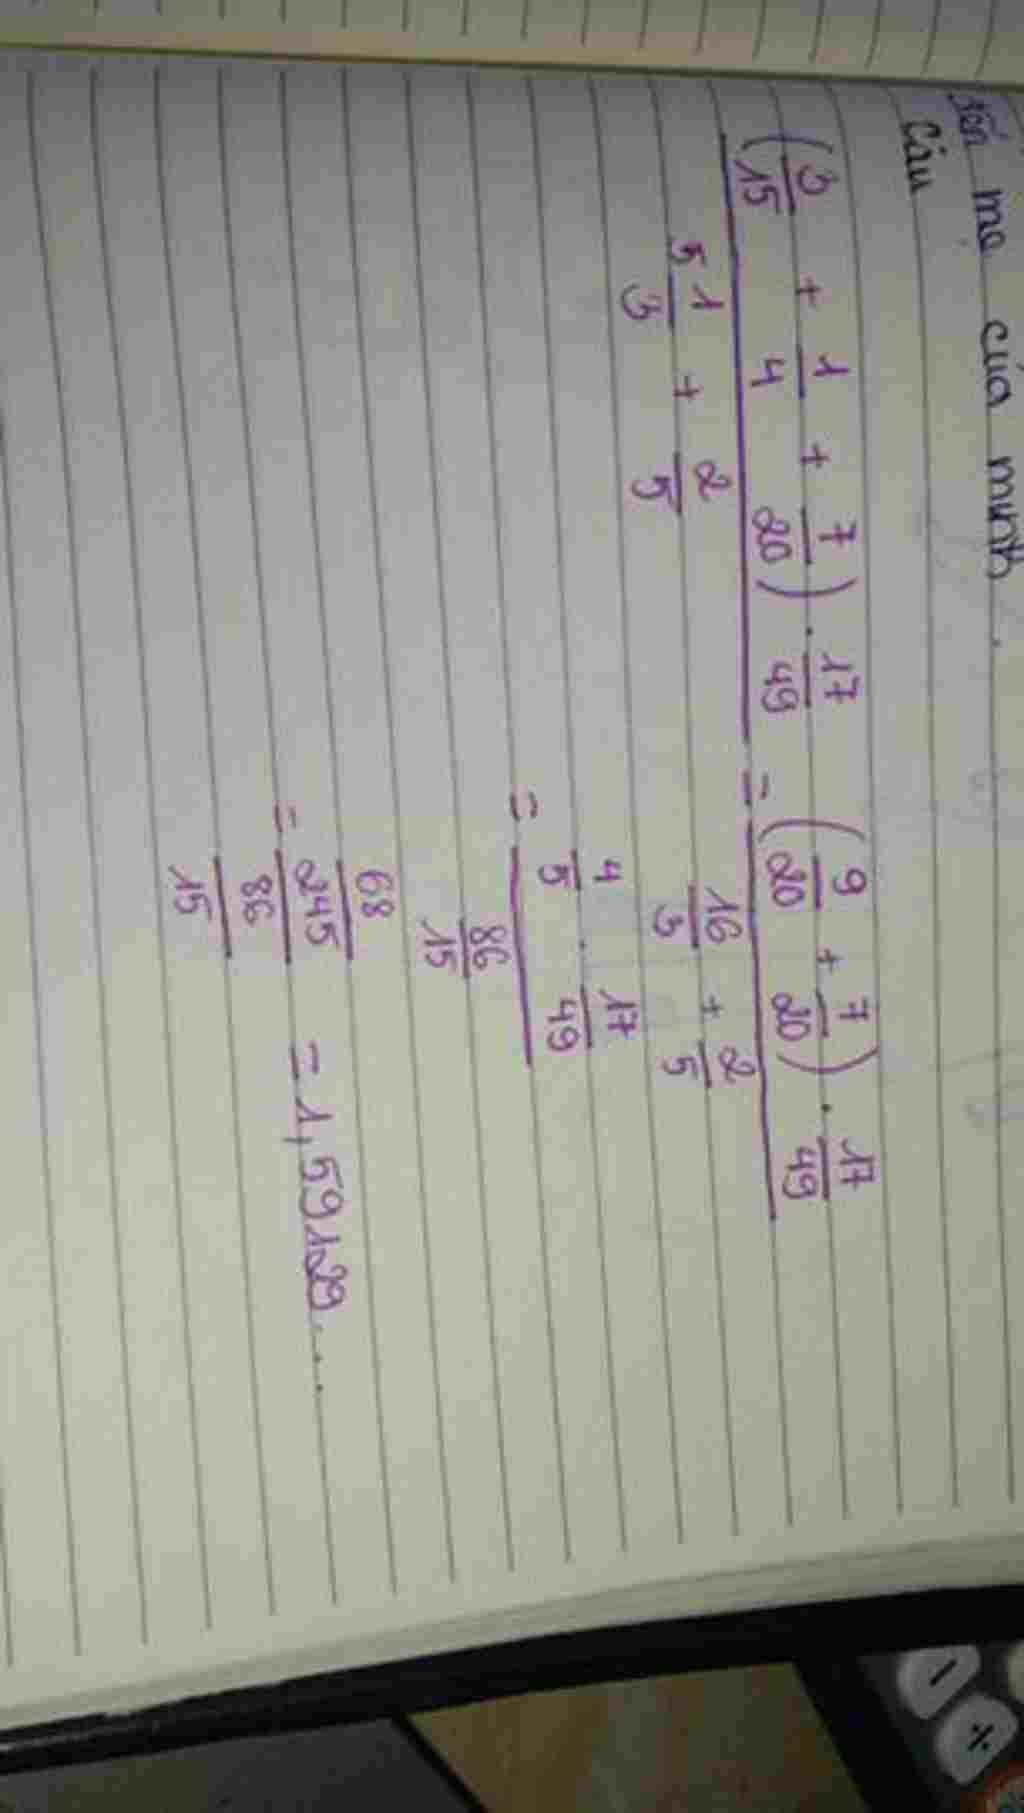 tên mẹ của mình.
Câu
(3/15 + 1/4 + 7/20) . 17/49 / 5 1/3 + 2/5 = (9/20 + 7/20) . 17/49 / 16/3 + 2/5
= 4/5 . 17/49 / 86/15
= 68/245 / 86/15 = 1,59129...
- ÷